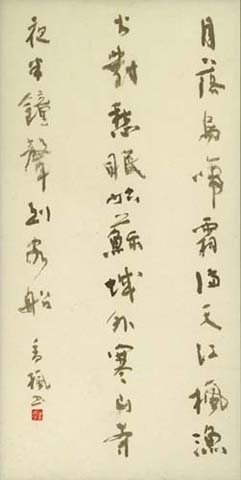 月落烏啼霜滿天江楓漁
火對愁眠姑蘇城外寒山寺
夜半鐘聲到客船
楓书